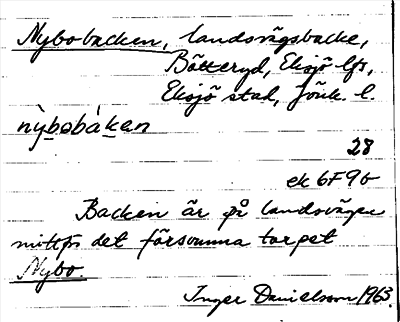 Nybobacken, landsvägsbacke,
Bötteryd, Eksjö lfs,
Eksjö stad, Jönk. l.
nỳbobáken
28
ek 6F9b
Backen är på landsvägen
mittför det försvunna torpet
Nybo.
Inger Danielsson 1963.